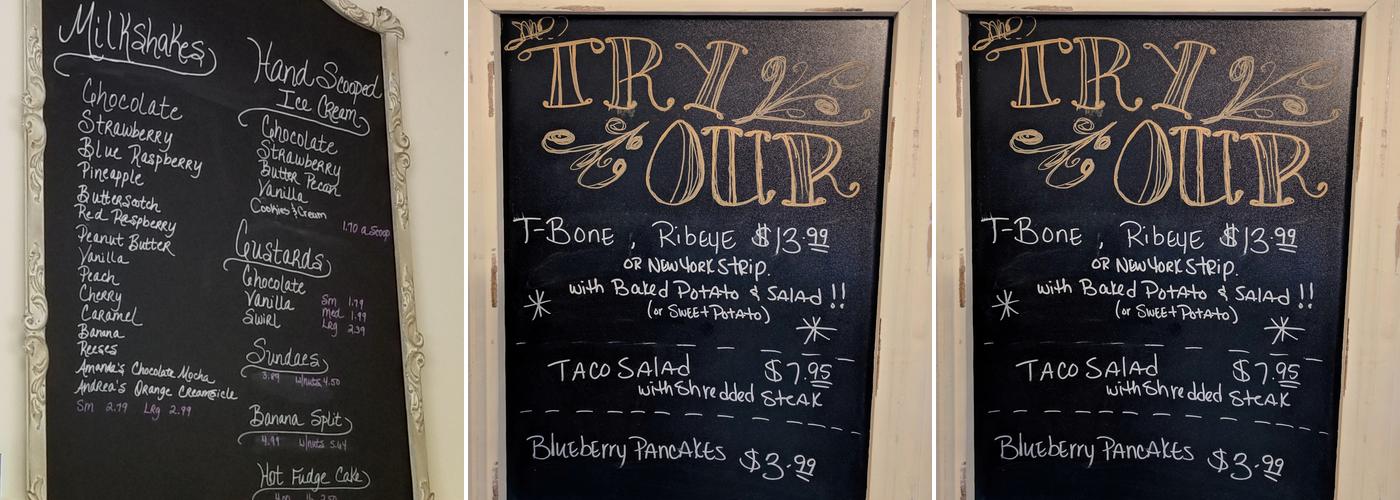 Milkshakes
Chocolate
Strawberry
Blue Raspberry
Pineapple
Butterscotch
Red Raspberry
Peanut Butter
Vanilla
Peach
Cherry
Caramel
Banana
Reeses
Amanda's Chocolate Mocha
Andrea's Orange Creamsicle
Sm 2.79 Lrg 2.99
Hand Scooped
Ice Cream
Chocolate
Strawberry
Butter Pecan
Vanilla
Cookies & Cream
1.70 a Scoop
Custards
Chocolate
Vanilla
Swirl
Sm 1.79
Med 1.99
Lrg 2.39
Sundaes
3.89 w/nuts 4.50
Banana Split
4.99 w/nuts 5.64
Hot Fudge Cake
TRY
OUR
T-BONE , RibEyE $13.99
OR NEW YORK STRIP.
with BAkEd POTATO & SALAd !!
(OR SWEET POTATO)
TACO SALAd $7.95
with Shredded STEAK
BluEbErry PANCAKES $3.99
TRY
OUR
T-BONE , RibEyE $13.99
OR NEW YORK STRIP.
with BAkEd POTATO & SALAd !!
(OR SWEET POTATO)
TACO SALAd $7.95
with Shredded STEAK
BluEbErry PANCAKES $3.99